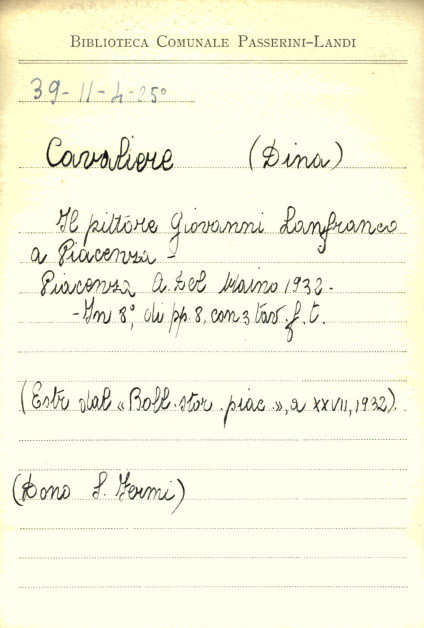 BIBLIOTECA COMUNALE PASSERINI-LANDI
39-11-4-25°
Cavaliere (Dina)
Il pittore Giovanni Lanfranco
a Piacenza -
Piacenza A. Del Maino 1932 -
- In 8°, di pp. 8, con 3 tav. f. t.
(Estr dal «Boll. stor. piac.», a XXVII, 1932).
(Dono S. Fermi)